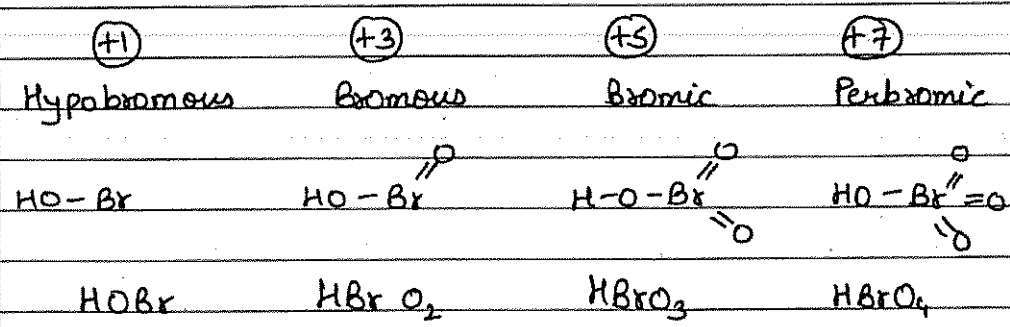 +1 +3 +5 +7
Hypobromous Bromous Bromic Perbromic
O O O
HO-Br HO-Br H-O-Br HO-Br=O
O O
HOBr HBrO₂ HBrO₃ HBrO₄